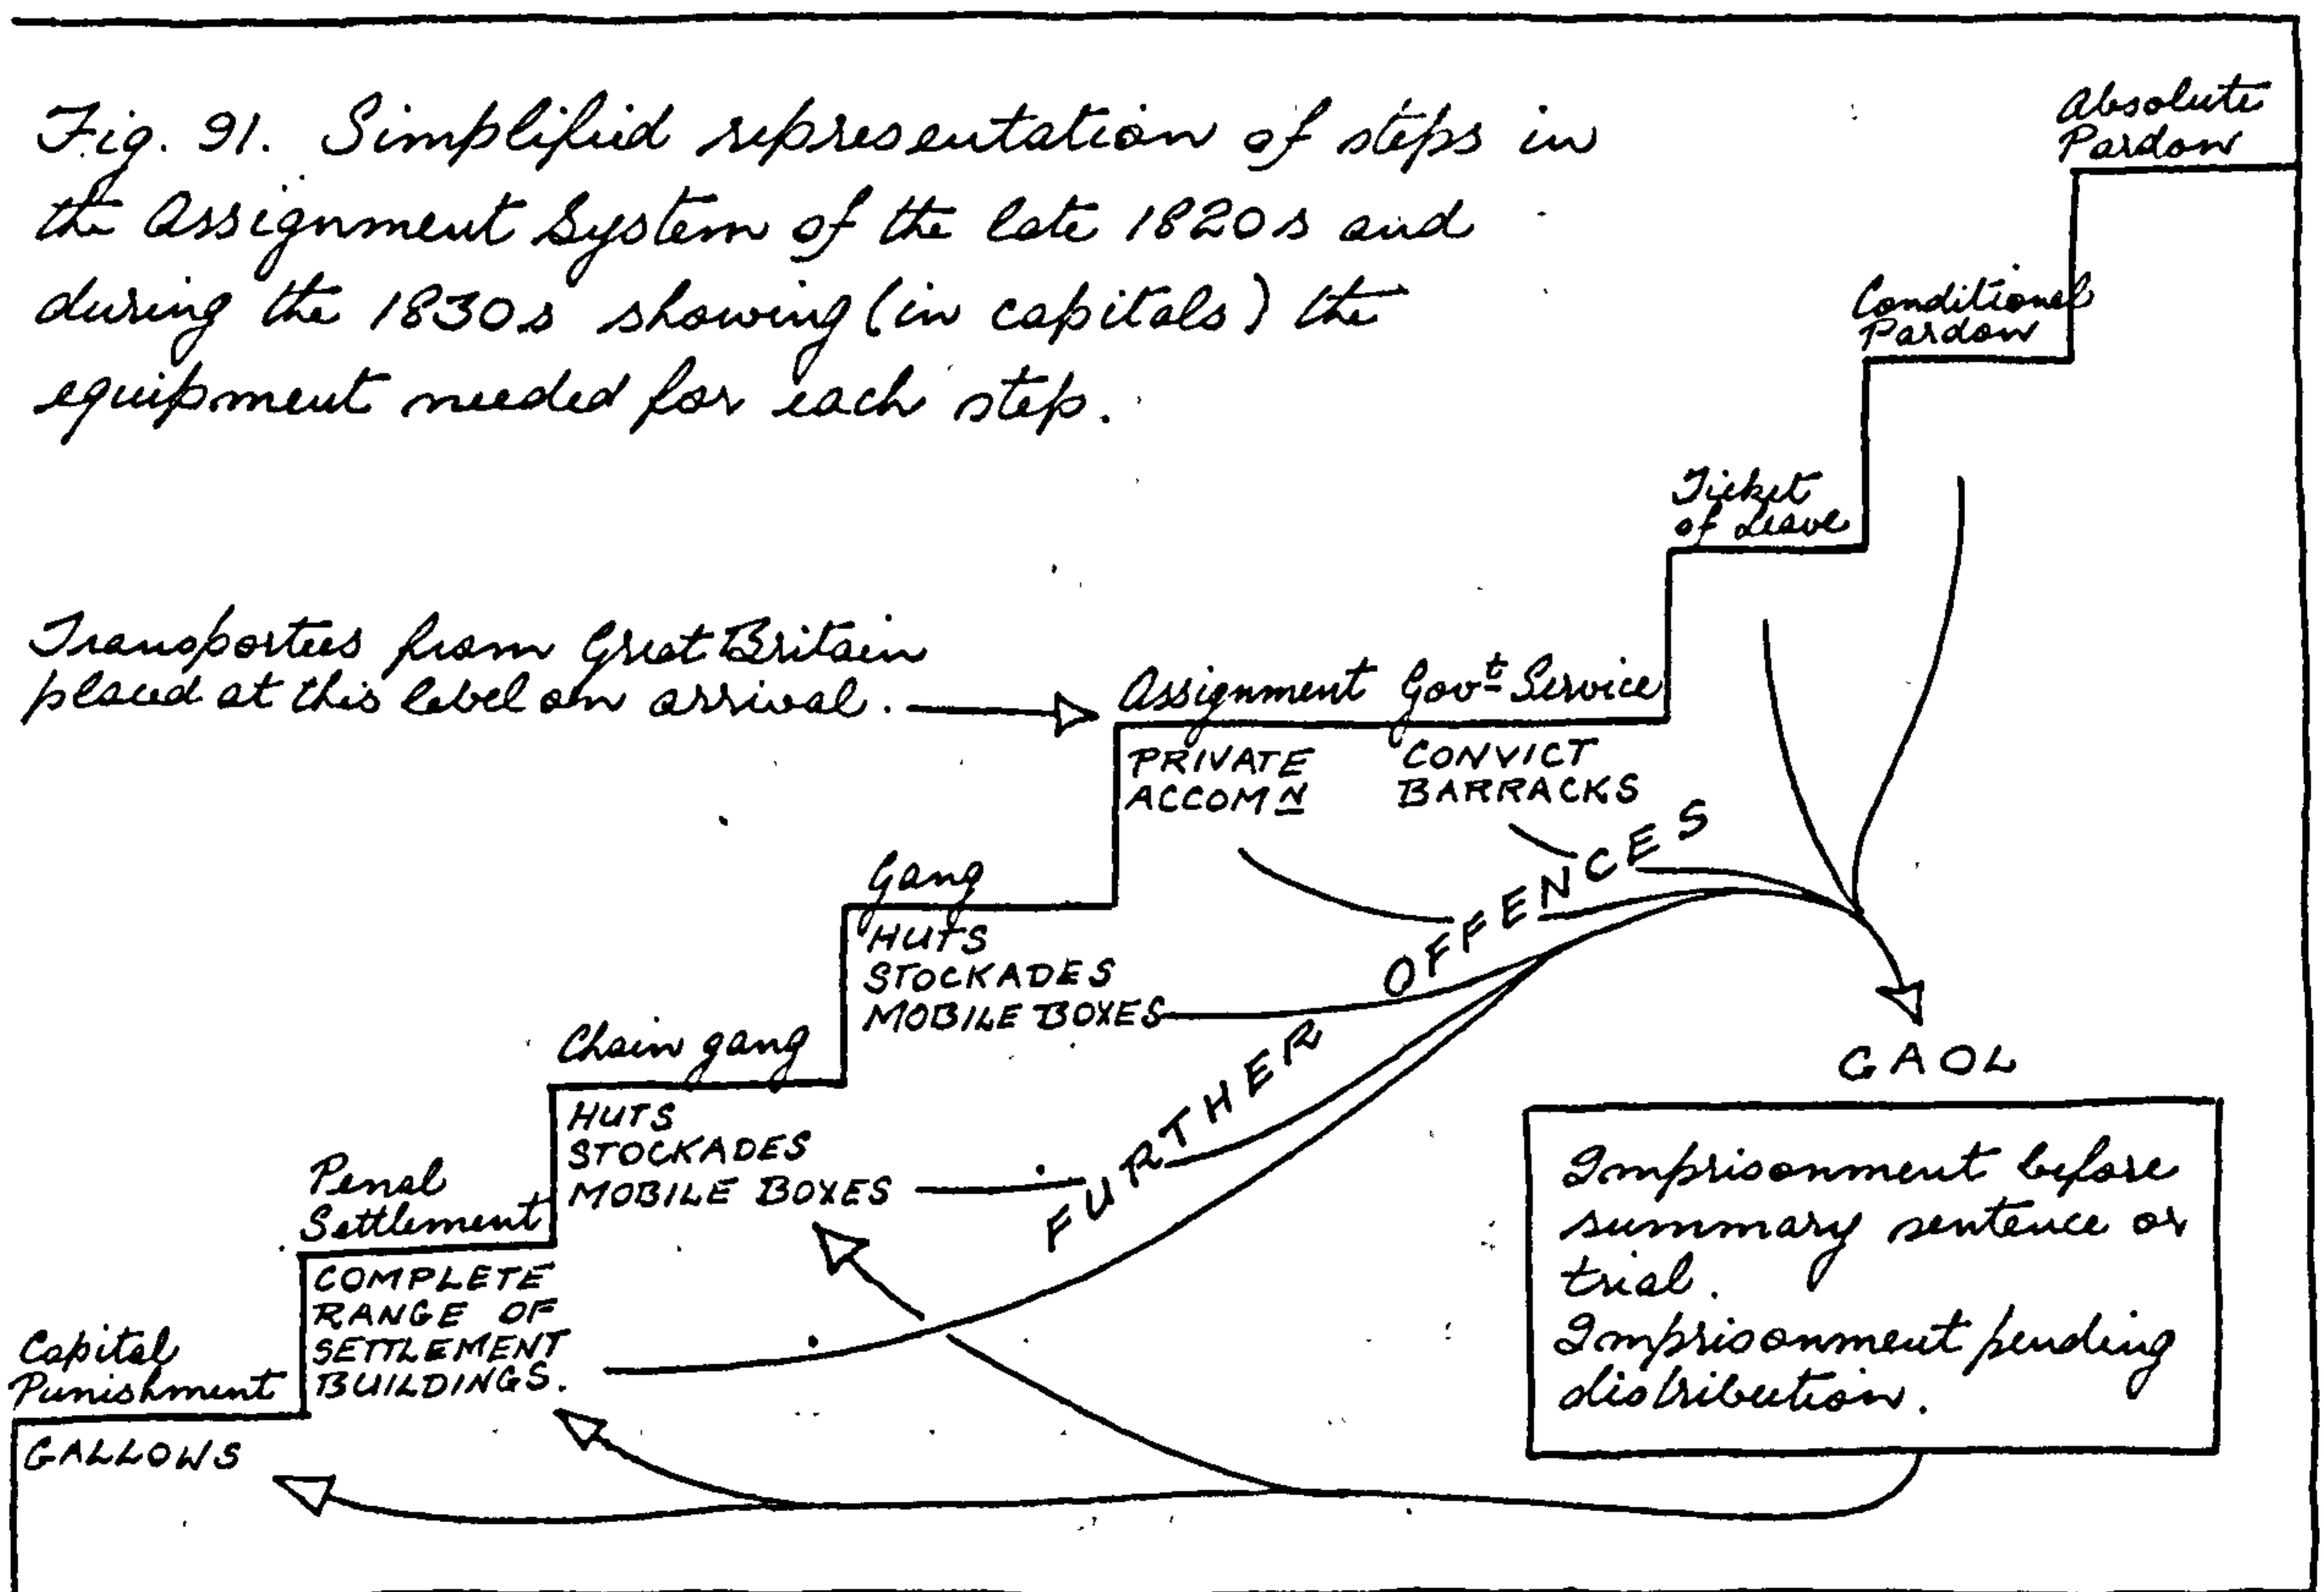 Fig. 91. Simplified representation of steps in
the Assignment System of the late 1820s and
during the 1830s showing (in capitals) the
equipment needed for each step.
Absolute
Pardon
Conditional
Pardon
Ticket
of Leave
Transportees from Great Britain
placed at this level on arrival.
Assignment Govt Service
PRIVATE
ACCOMN
CONVICT
BARRACKS
Gang
HUTS
STOCKADES
MOBILE BOXES
Chain gang
HUTS
STOCKADES
MOBILE BOXES
Penal
Settlement
COMPLETE
RANGE OF
SETTLEMENT
BUILDINGS.
Capital
Punishment
GALLOWS
FURTHER OFFENCES
GAOL
Imprisonment before
summary sentence or
trial.
Imprisonment pending
distribution.